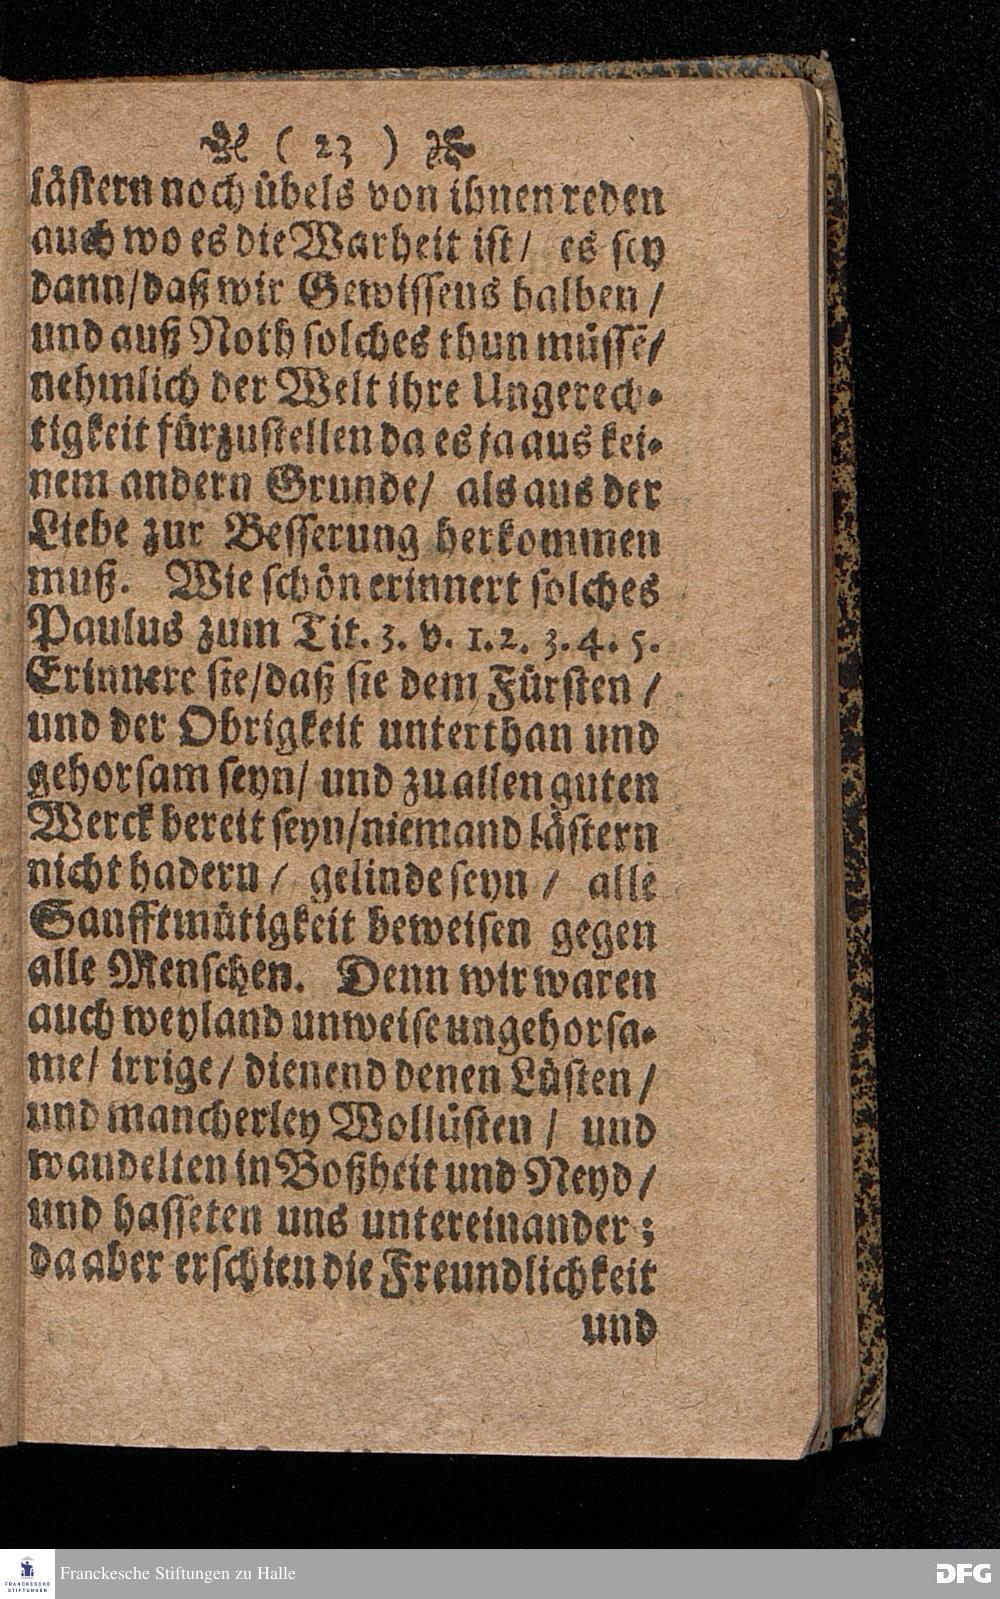 ( 23 )
lästern noch übels von ihnen reden
auch wo es die Warheit ist/ es sey
dann/daß wir Gewissens halben/
und auß Noth solches thun müssẽ/
nehmlich der Welt ihre Ungerech-
tigkeit fürzustellen da es ja aus kei-
nem andern Grunde/ als aus der
Liebe zur Besserung herkommen
muß. Wie schön erinnert solches
Paulus zum Tit. 3. v. 1. 2. 3. 4. 5.
Erinnere sie/daß sie dem Fürsten/
und der Obrigkeit unterthan und
gehorsam seyn/ und zu allen guten
Werck bereit seyn/niemand lästern
nicht hadern/ gelinde seyn/ alle
Sanfftmütigkeit beweisen gegen
alle Menschen. Denn wir waren
auch weyland unweise ungehorsa-
me/ irrige/ dienend denen Lüsten/
und mancherley Wollüsten/ und
wandelten in Boßheit und Neyd/
und hasseten uns untereinander;
da aber erschien die Freundlichkeit
und
FRANCKESCHE STIFTUNGEN
Franckesche Stiftungen zu Halle
DFG